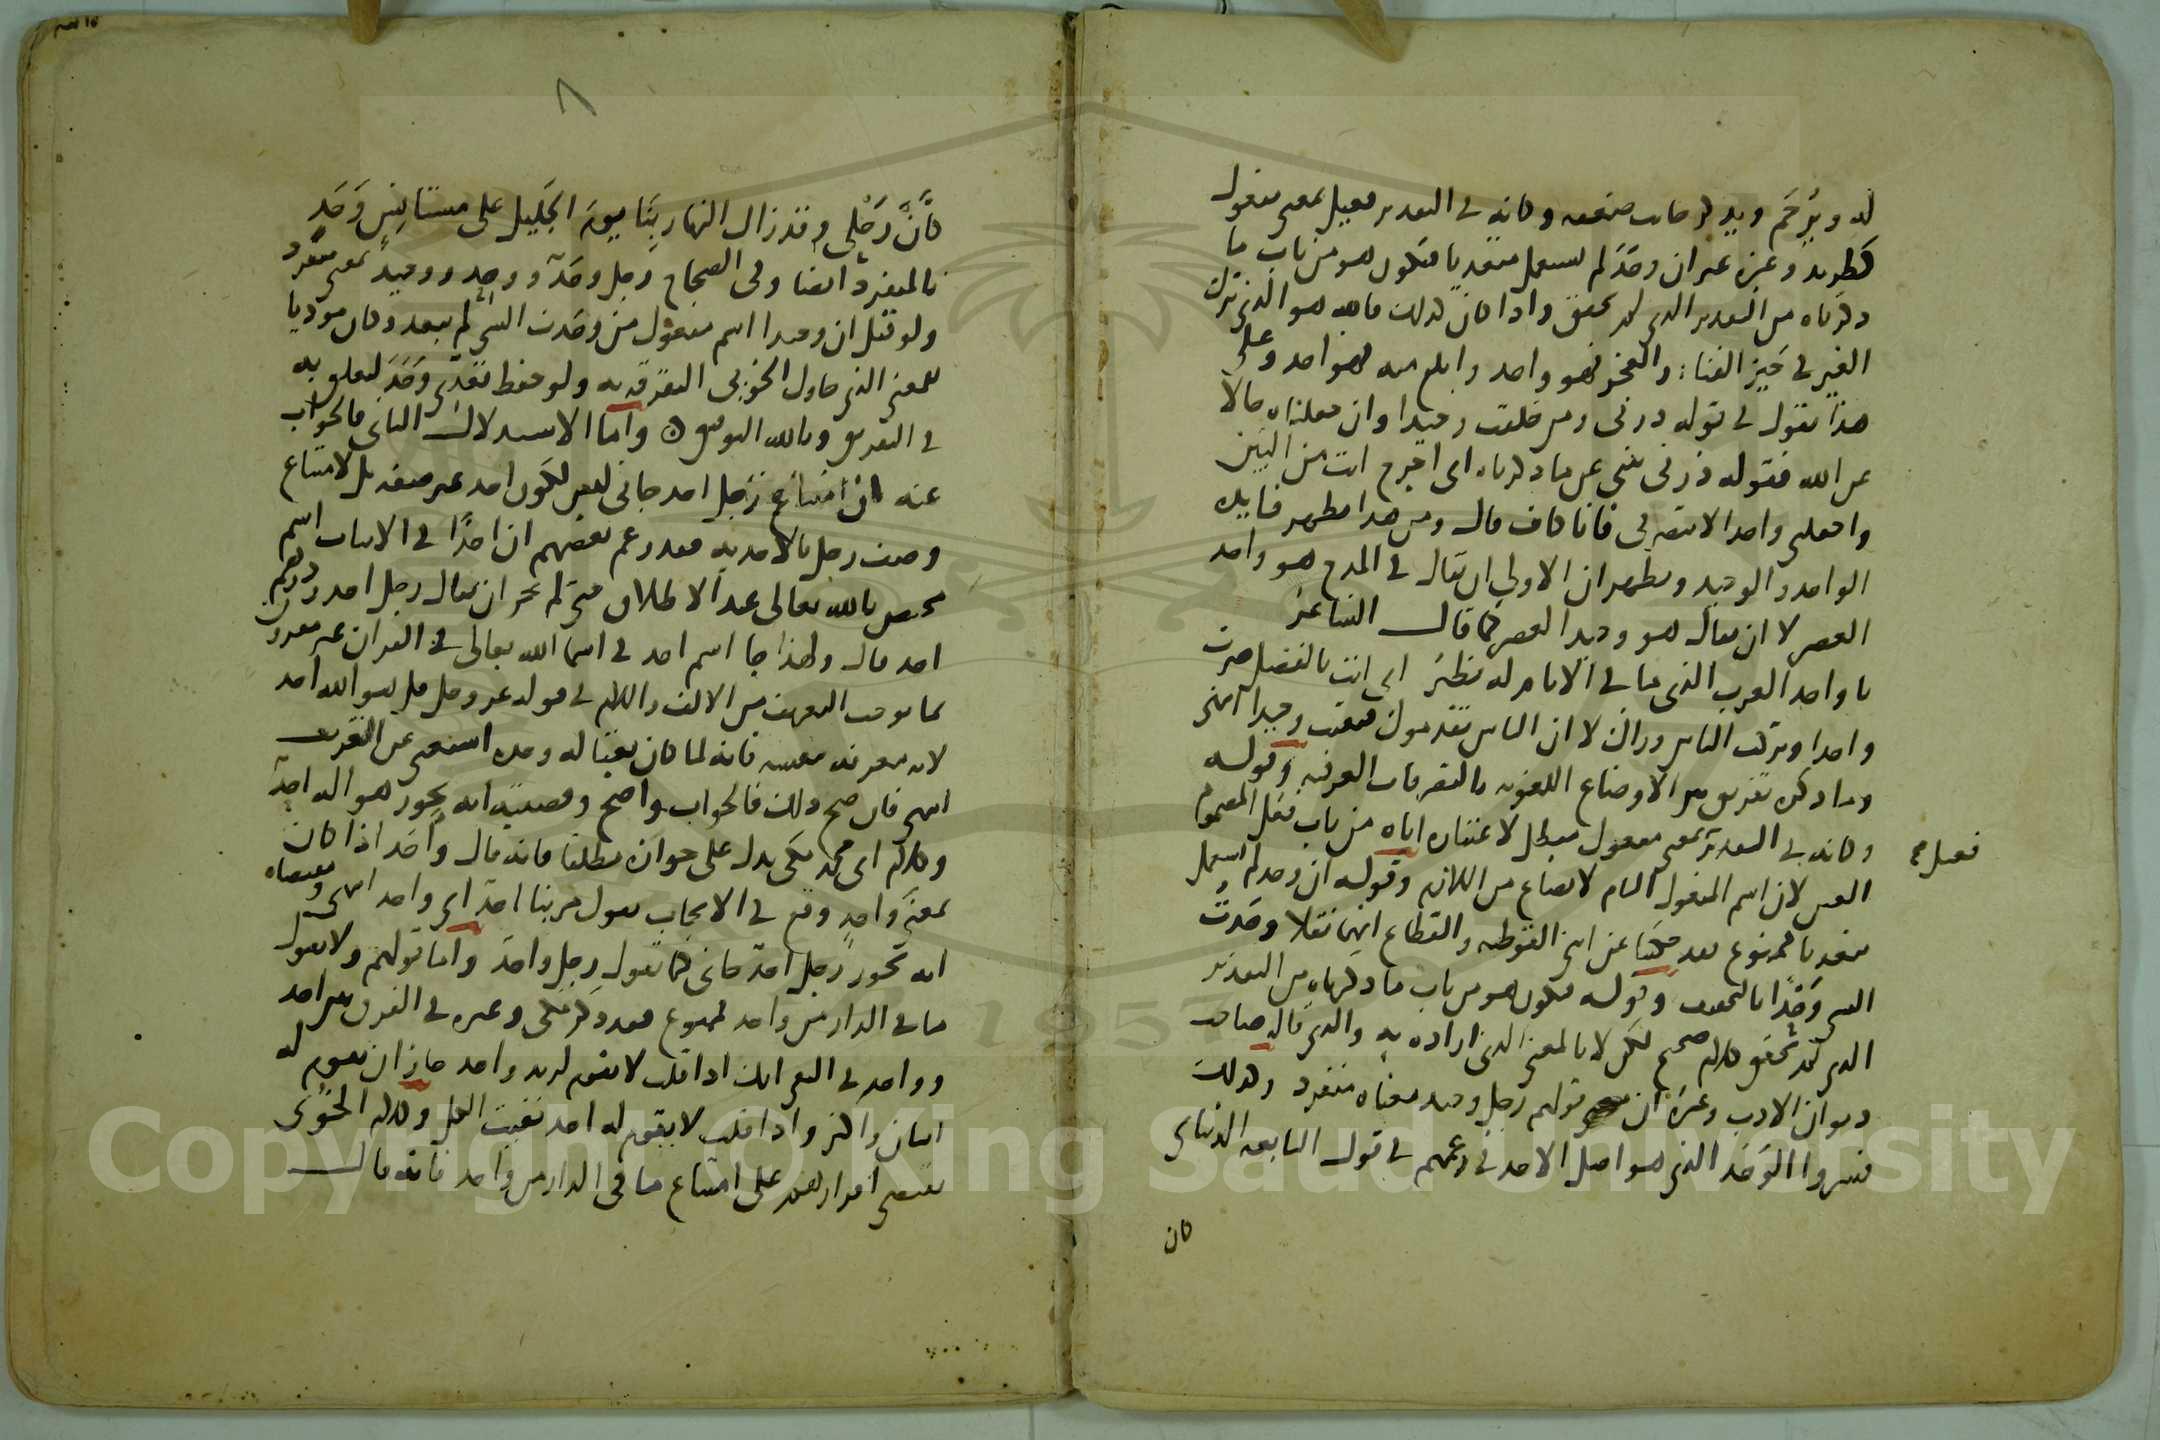 له ويُرْحَم ويذكر حاله ضعفه وكانه في التقدير فعيل بمعنى مفعول
كطريد وغيره غير ان وحَدَ لم يستعمل متعديا فتكون هو من باب ما
ذكرناه من التقدير الذي لم يحقق واذا كان كذلك فالله هو الذي ترك
الغير في حَيّز الفنا والعجز فهو واحد وابلغ منه هو احد وعلى
هذا نقول في قوله ذرني ومن خلقت وحيدا وان جعلناه حالا
عن الله فقوله ذرني يغني عن ما ذكرناه اى اخرج انت من البين
واجعلني واحدا لا تنصر لي فانا كاف قال ومن هذا تظهر فايدة
الواحد والوحيد ويظهر ان الاولى ان يقال في المدح هو واحد
العصر لا ان يقال هو وحيد العصر كما قال الشاعر
يا واحد العرب الذى ما في الانام له نظير اى انت بالفضل صرت
واحدا وتركت الناس وراك لا ان الناس تقدموك فبقيت وحيدا انتهى
وما ذكره تفريق بين الاوضاع اللغويه بالتفرقات العرفيه وقوله
وكانه في التقدير بمعنى مفعول مبطل لاعتقاده اياه من باب فعل المضموم
فعيل صح
العين لان اسم المفعول التام لا يصاغ من اللازم وقوله ان وحد لم يستعمل
متعديا ممنوع فقد حكينا عن ابن القوطيه والقطاع انهما نقلا وحَدتُ
الشي وَحْدًا بالتخفيف وقوله فيكون هو من باب ما ذكرناه من التقدير
الذي لم يتحقق كلام صحيح لكن لا بالمعنى الذى اراده به والذي قاله صاحب
ديوان الادب وغيره ان قولهم رجل وحيد معناه منفرد وكذلك
فسروا الوَحَد الذى هو اصل الاحد في زعمهم في قول النابغه الذبياني
كان
٨
كأَنَّ رَحْلي وقد زال النهار بِنَا يومَ الجَليل على مستانِسٍ وَحَدِ
بالمنفرد ايضا وفي الصحاح رجل وحَدٌ ووحِد ووحيدٌ بمعنى منفرد
ولو قيل ان وحيدا اسم مفعول من وحَدت الشي لم يبعد وكان موديا
للمعنى الذي حاول الخويى التفرقه به ولو حفظ تعدّي وَحَدَ لتعلق به
في التفريق وبالله التوفيق ۞ واما الاستدلال الثاني فالجواب
عنه ان امتناع رجل احد جاني ليس لكون احد غير صفه بل لامتناع
وصف رجل بالاحديه فقد زعم بعضهم ان احَدًا في الاثبات اسم
مختص بالله تعالى عند الاطلاق حتى لم يجز ان يقال رجل احد ودرهم
احد قال ولهذا جا اسم احد في اسما الله تعالى في القران غير مقرون
بما يوجب التعريف من الالف واللام في قوله عز وجل قل هو الله احد
لانه معرفه بنفسه فانه لما كان نعتا له وحده استغنى عن التعريف
انتهى فان صح ذلك فالجواب واضح وقضيته انه يجوز هو اله احد
وكلام ابي محمد مكى يدل على جوازه مطلقا فانه قال وأَحَد اذا كان
بمعنى واحدٍ وقع في الايجاب تقول مر بنا احد اى واحد انتهى ومقتضاه
انه يجوز رجل احد جاني كما تقول رجل واحد واما قولهم ولا تقول
ما في الدار من واحد فممنوع فقد ذكر مكي وغيره في الفرق بين احد
وواحد في النفي انك اذا قلت لا يقوم لزيد واحد جاز ان يقوم له
اثنان واكثر واذا قلت لا يقوم له احد نفيت الكل وكلام الخويى
يقتضي اقرار هذا على امتناع ما في الدار من واحد فانه قال